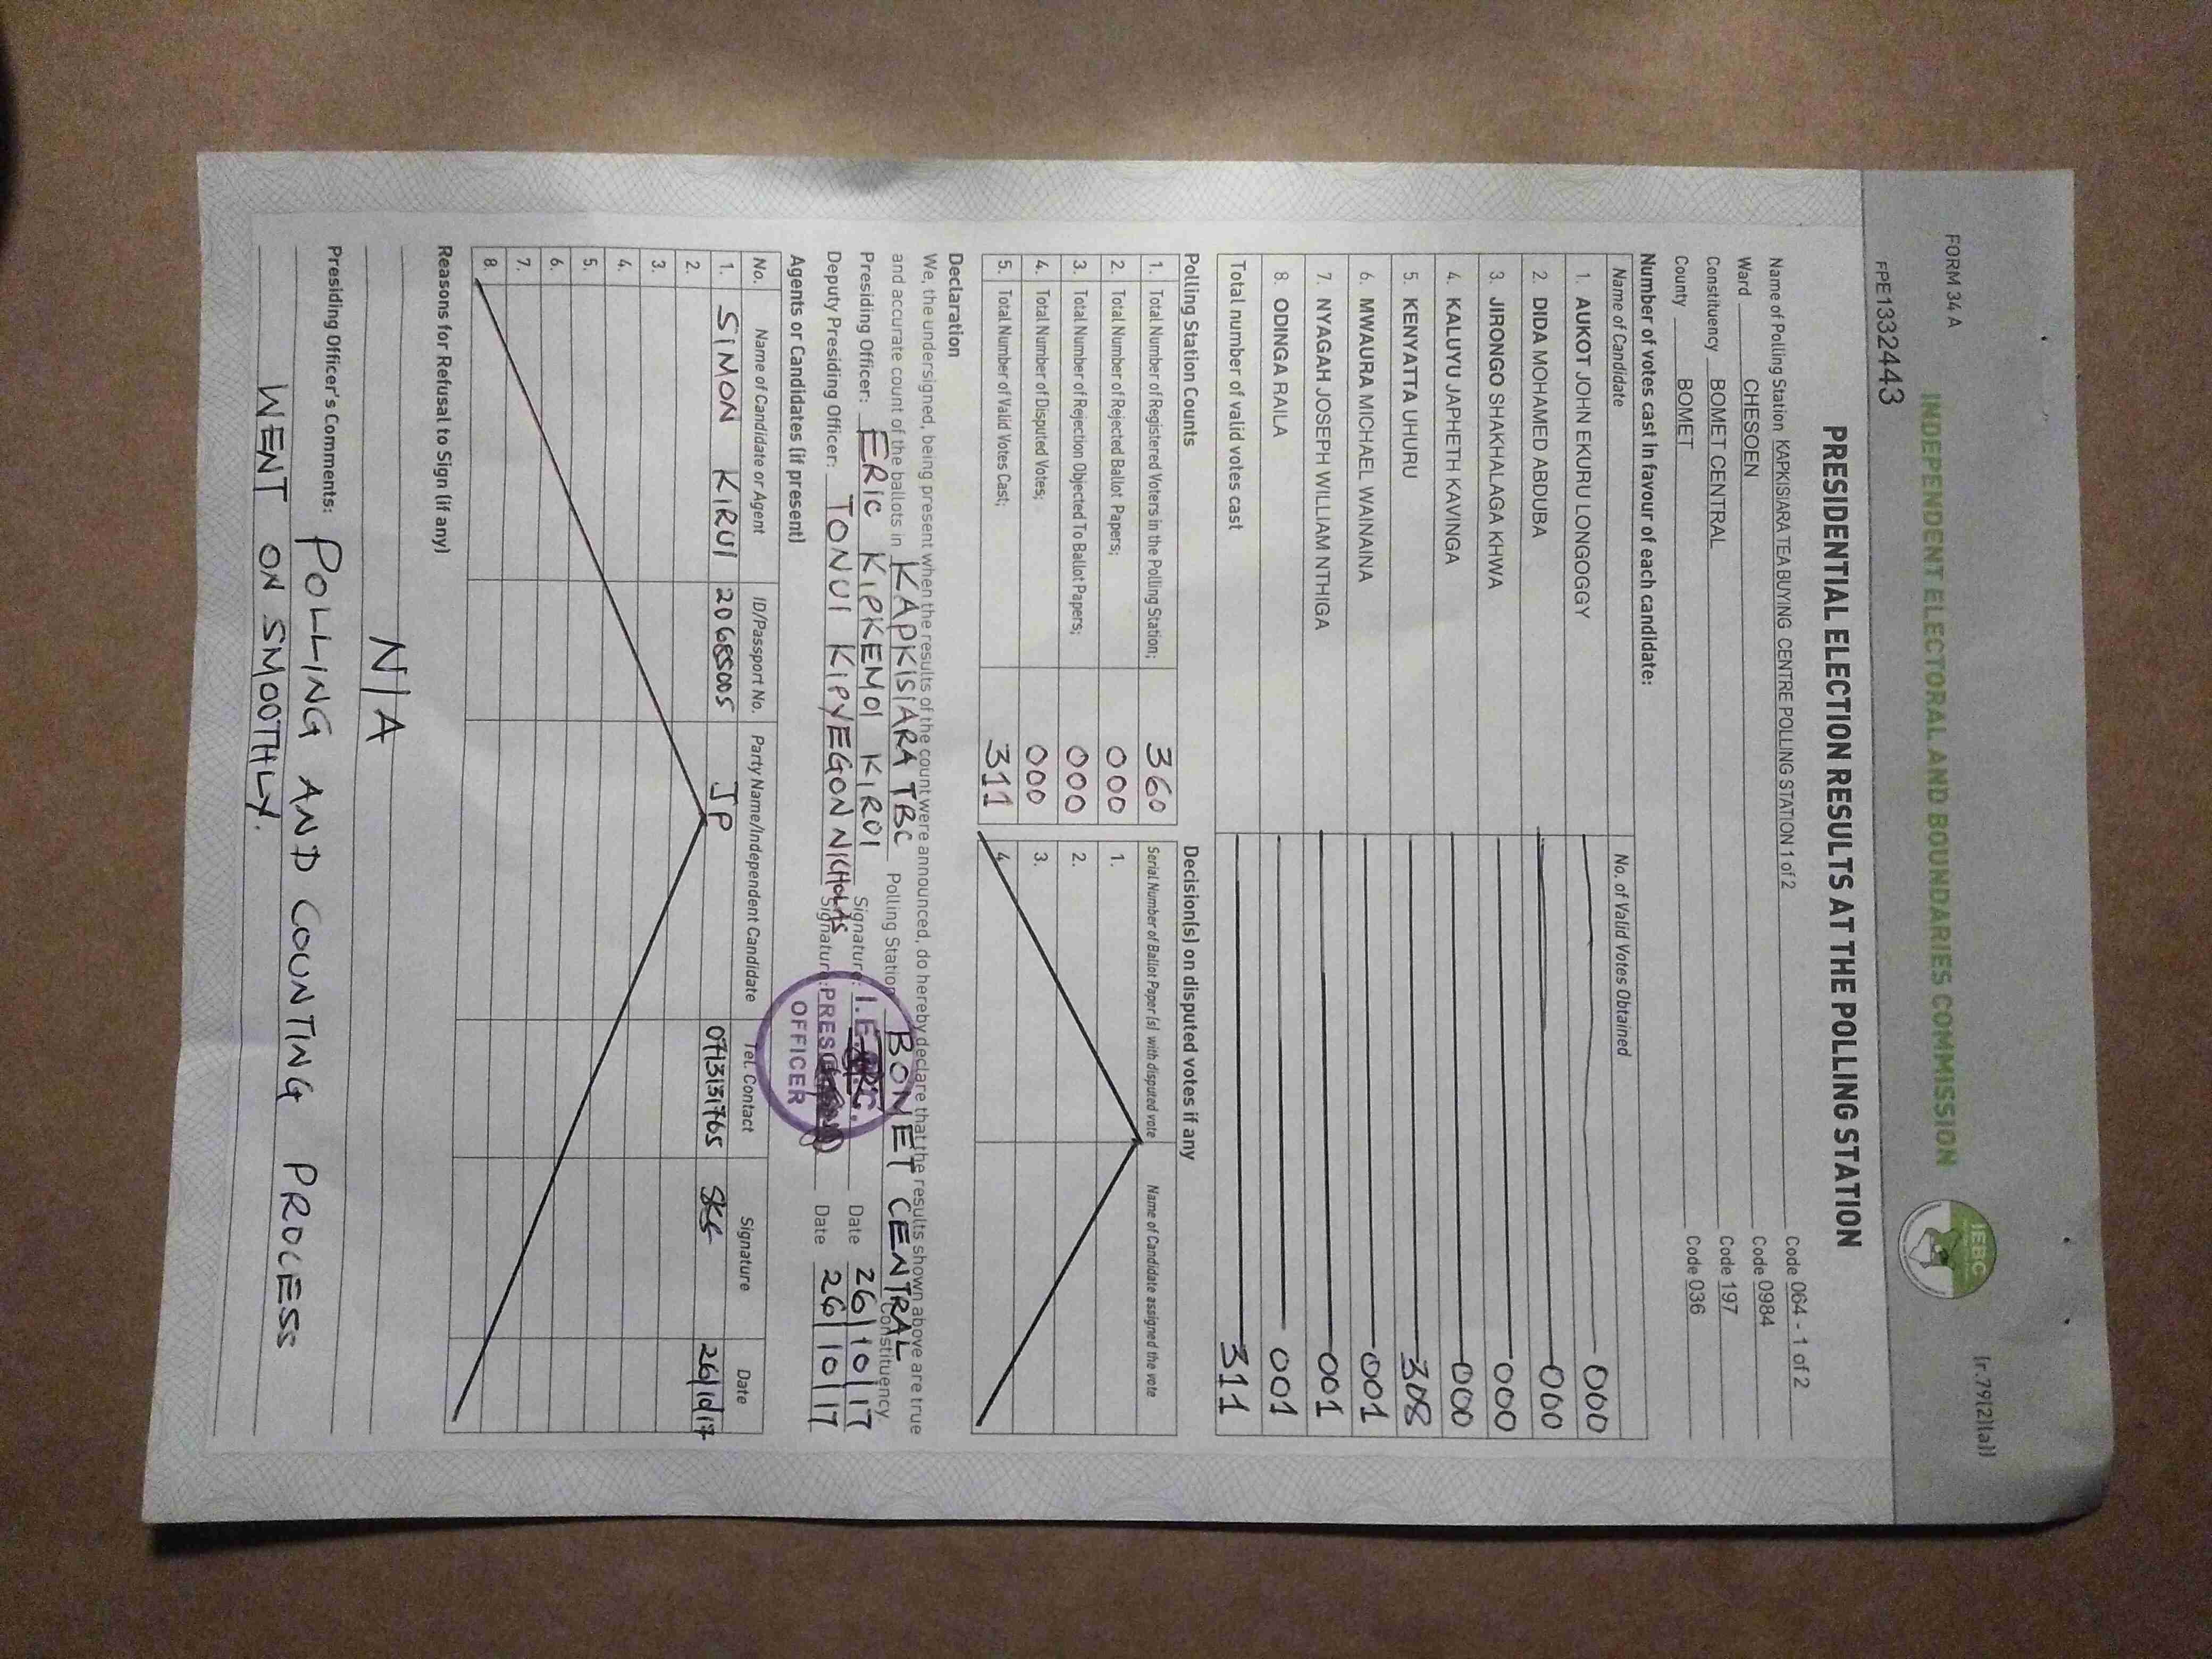 FORM 34 A
(r.79(2)(a))
INDEPENDENT ELECTORAL AND BOUNDARIES COMMISSION
IEBC
FPE1332443
PRESIDENTIAL ELECTION RESULTS AT THE POLLING STATION
Name of Polling Station KAPKISIARA TEA BUYING CENTRE POLLING STATION 1 of 2 Code 064 - 1 of 2
Ward CHESOEN Code 0984
Constituency BOMET CENTRAL Code 197
County BOMET Code 036
Number of votes cast in favour of each candidate:
Name of Candidate No. of Valid Votes Obtained
1. AUKOT JOHN EKURU LONGOGGY 000
2. DIDA MOHAMED ABDUBA 000
3. JIRONGO SHAKHALAGA KHWA 000
4. KALUYU JAPHETH KAVINGA 000
5. KENYATTA UHURU 308
6. MWAURA MICHAEL WAINAINA 001
7. NYAGAH JOSEPH WILLIAM NTHIGA 001
8. ODINGA RAILA 001
Total number of valid votes cast 311
Polling Station Counts Decision(s) on disputed votes if any
1. Total Number of Registered Voters in the Polling Station; 360 Serial Number of Ballot Paper (s) with disputed vote Name of Candidate assigned the vote
2. Total Number of Rejected Ballot Papers; 000 1.
3. Total Number of Rejection Objected To Ballot Papers; 000 2.
4. Total Number of Disputed Votes; 000 3.
5. Total Number of Valid Votes Cast; 311 4.
Declaration
We, the undersigned, being present when the results of the count were announced, do hereby declare that the results shown above are true
and accurate count of the ballots in KAPKISIARA TBC Polling Station BOMET CENTRAL Constituency
Presiding Officer: ERIC KIPKEMOI KIRUI Signature: Date 26/10/17
Deputy Presiding Officer: TONUI KIPYEGON NICHOLAS Signature: Date 26/10/17
OFFICER
Agents or Candidates (if present)
No. Name of Candidate or Agent ID/Passport No. Party Name/Independent Candidate Tel. Contact Signature Date
1. SIMON KIRUI 20685005 JP 0713131765 26/10/17
2.
3.
4.
5.
6.
7.
8.
Reasons for Refusal to Sign (if any)
N/A
Presiding Officer's Comments: POLLING AND COUNTING PROCESS
WENT ON SMOOTHLY.